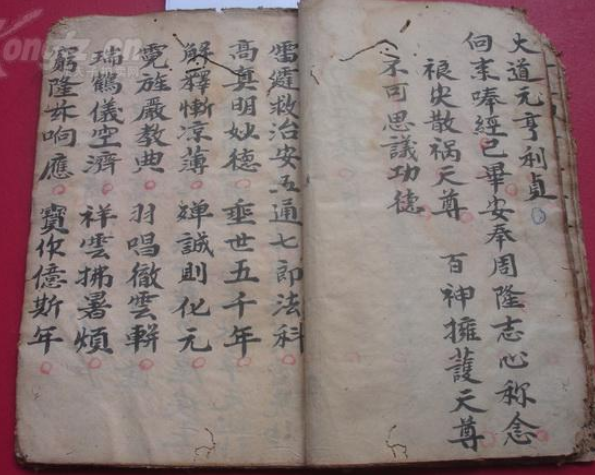 大道元亨利貞
向来唪經已畢安奉周隆志心称念
散祸天尊 百神擁護天尊
不可思議功德
雷霆救治安五通七即法科
高真明妙德 垂世五千年
解釋慚凉薄 殫誠則化元
霓旌嚴教典 羽唱徹雲輧
瑞鶴儀空濟 祥雲拂暑煩
窮隆 响應 寶你億斯年